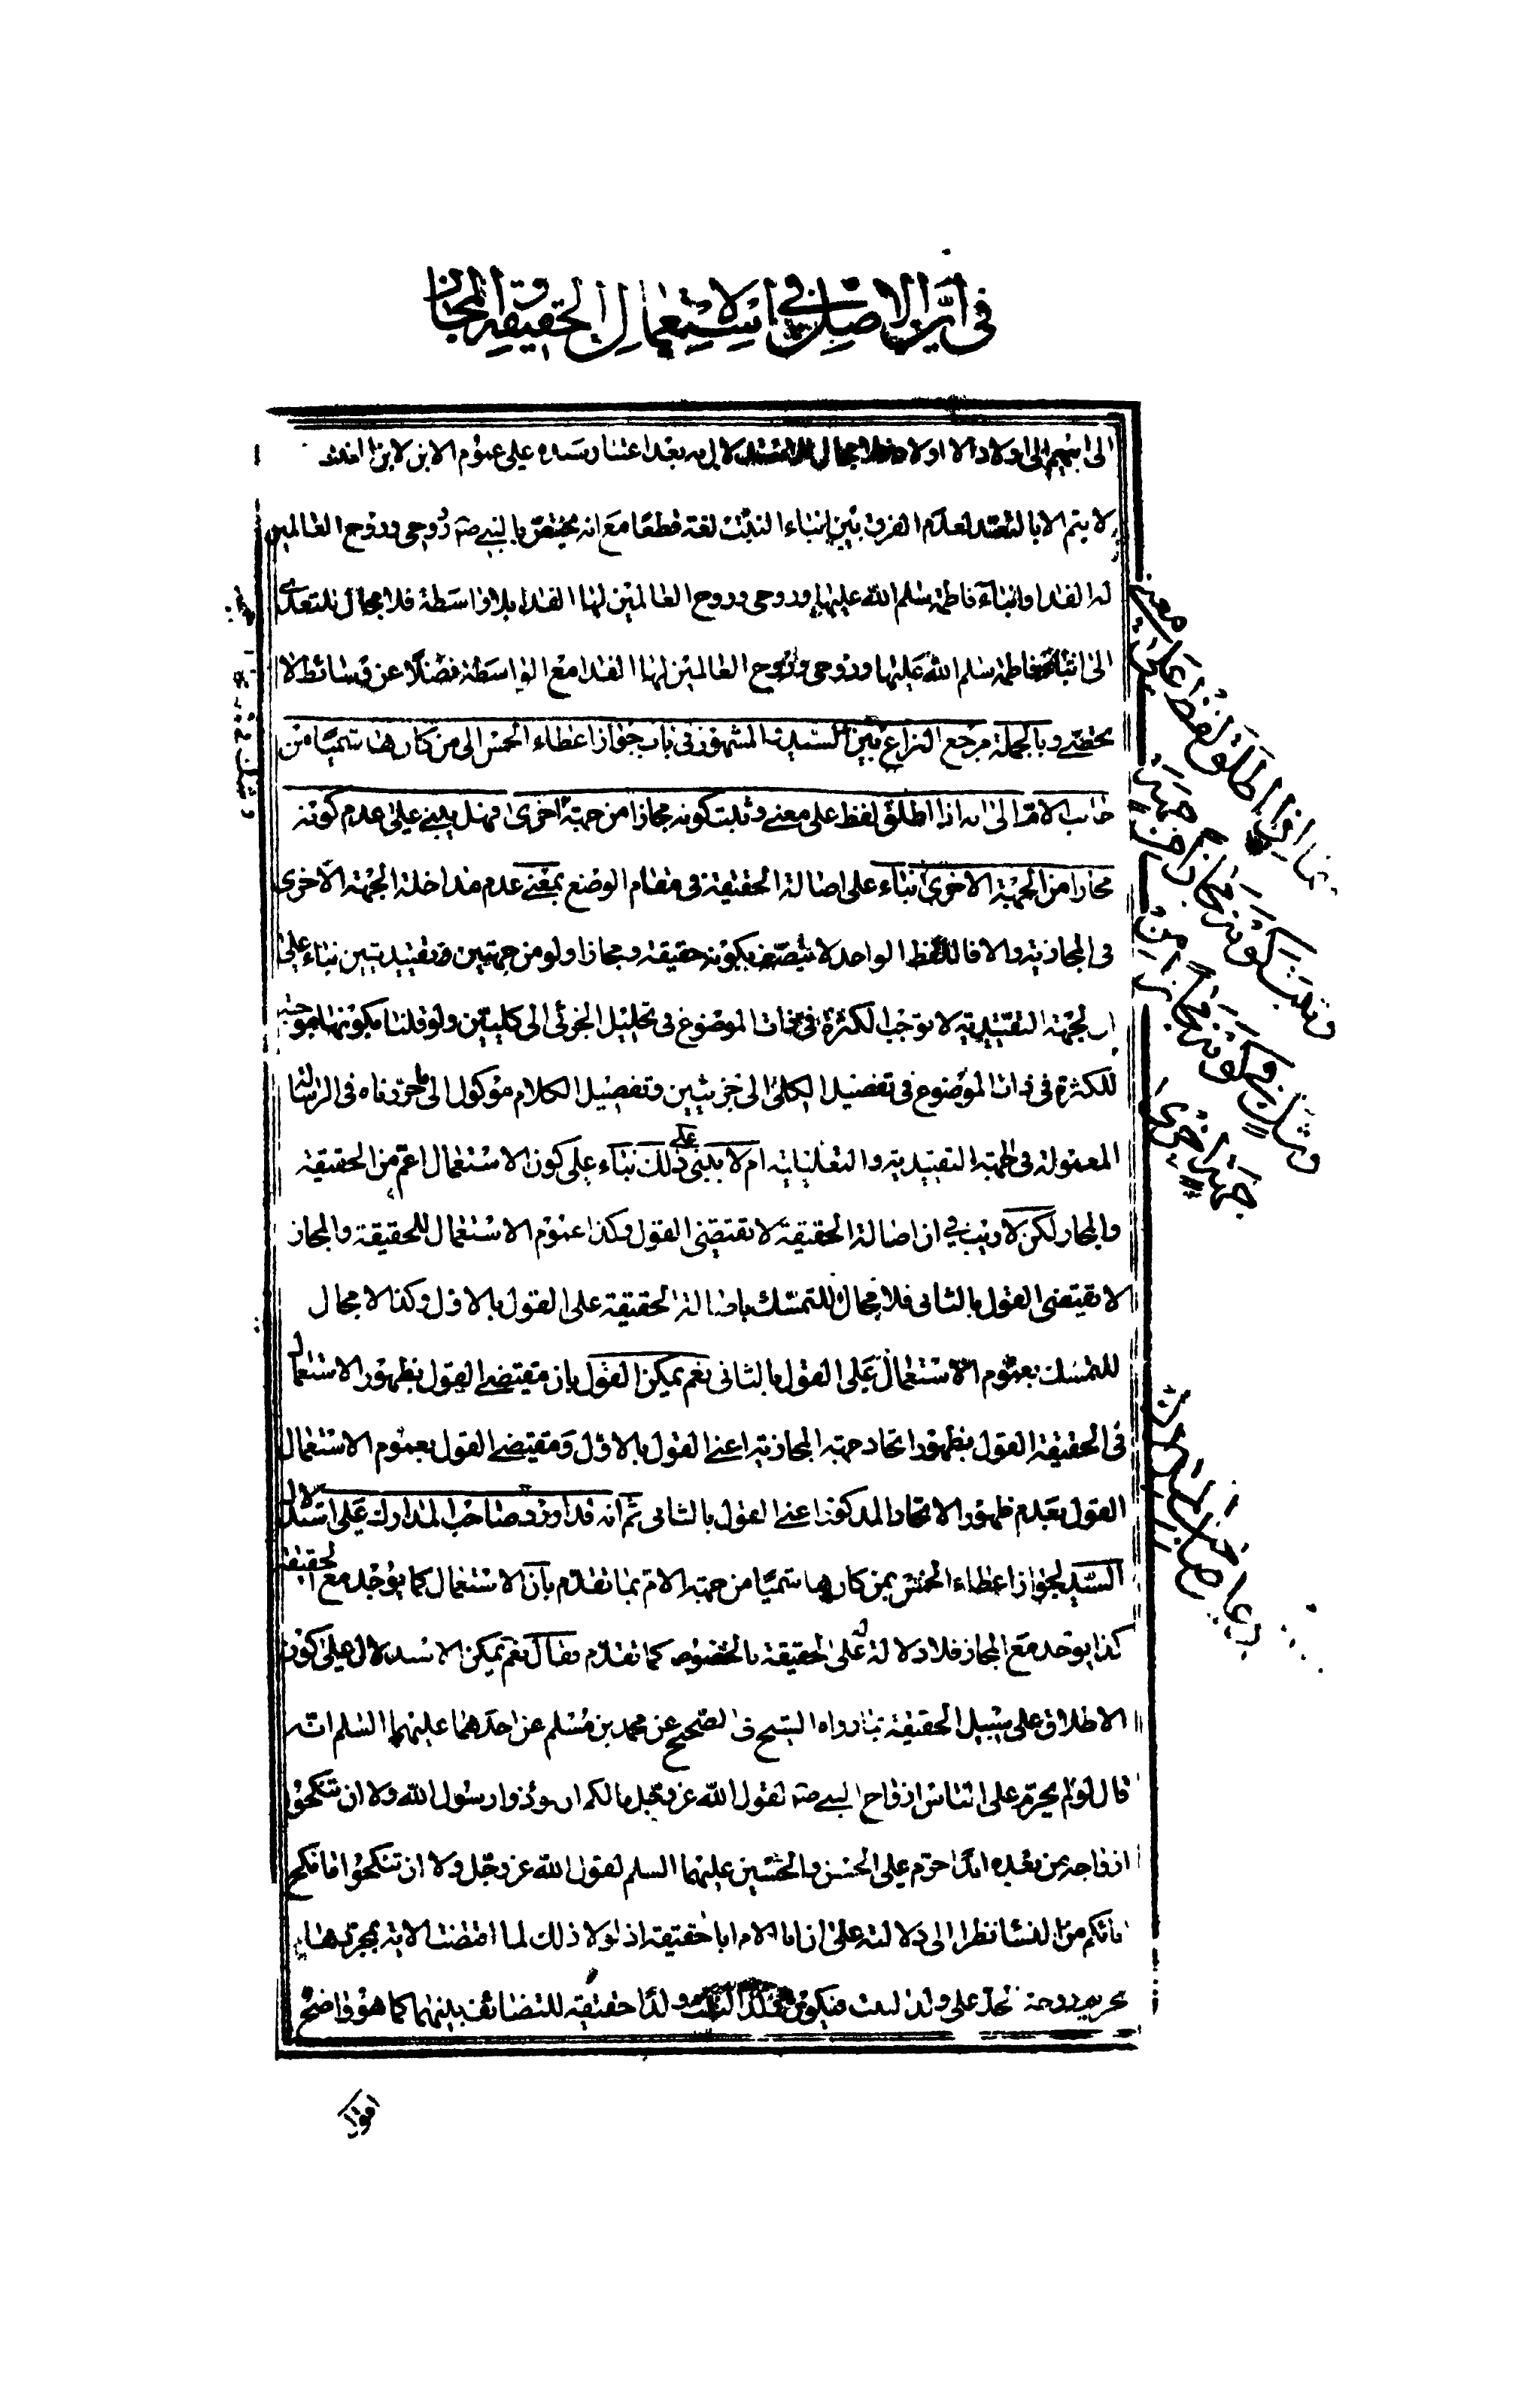 في ان الاصل في الاستعمال الحقيقة او المجاز
الى ابنهم الى اولاد الاولاد بعد اعتبار سنده على عموم الابن لابن
لا يتم الا بالتعبد لعدم الفرق بين ابناء البنت لغة قطعا مع انه مختص بالنبي صه روحى وروح العالمين
له الفداء وابناء فاطمة سلم الله عليها وروحى وروح العالمين لها الفداء بلا واسطة فلا مجال للتعدى
الى ابناء فاطمة سلم الله عليها وروحى وروح العالمين لها الفداء مع الواسطة فضلا عن وسائط لا
تحصى وبالجملة مرجع النزاع بين السيد والمشهور في باب جواز اعطاء الخمس الى من كان هاشميا من
جانب الام الى انه اذا اطلق لفظ على معنى وثبت كونه مجازا من جهة اخرى فهل يبنى على عدم كونه
مجازا من الجهة الاخرى بناء على اصالة الحقيقة في مقام الوضع بمعنى عدم مداخلة الجهة الاخرى
في المجازية والا فاللفظ الواحد لا يتصف بكونه حقيقة ومجازا ولو من جهتين وتقييديتين بناء على
ان الجهة التقييدية لا توجب الكثرة في ذات الموضوع في تحليل الجزئى الى كليتين ولو قلنا بكونها موجبة
للكثرة في ذات الموضوع في تفصيل الكلى الى جزئيين وتفصيل الكلام موكول الى ما حررناه في الرسالة
المعمولة في الجهة التقييدية والتعليلية ام لا يبنى على ذلك بناء على كون الاستعمال اعم من الحقيقة
والمجاز لكن لا ريب في ان اصالة الحقيقة لا تقتضى القول وكذا عموم الاستعمال للحقيقة والمجاز
لا يقتضى القول بالثانى فلا مجال للتمسك باصالة الحقيقة على القول بالاول وكذا لا مجال
للتمسك بعموم الاستعمال على القول بالثانى نعم يمكن القول بان مقتضى القول بظهور الاستعمال
في الحقيقة القول بظهور اتحاد جهة المجازية اعنى القول بالاول ومقتضى القول بعموم الاستعمال
القول بعدم ظهور الاتحاد المذكور اعنى القول بالثانى ثم انه قد اورد صاحب المدارك على استدلال
السيد لجواز اعطاء الخمس بمن كان هاشميا من جهة الام بما تقدم بان الاستعمال كما يوجد مع الحقيقة
كذا يوجد مع المجاز فلا دلالة له على الحقيقة بالخصوص كما تقدم فقال نعم يمكن الاستدلال على كون
الاطلاق على سبيل الحقيقة بما رواه الشيخ في الصحيح عن محمد بن مسلم عن احدهما عليهما السلم انه
قال لو لم يحرم على الناس ازواج النبى صه لقول الله عز وجل ما لكم ان توذوا رسول الله ولا ان تنكحوا
ازواجه من بعده ابدا حرم على الحسن والحسين عليهما السلم لقول الله عز وجل ولا ان تنكحوا ما نكح
ابائكم من النساء نظرا الى دلالته على ان ابا الام ابا حقيقة اذ لولا ذلك لما اقتضت الاية بمجردها
تحريم زوجة الجد على ولد البنت فيكون ولدا حقيقة للتضايف بينهما كما هو واضح
اذا اطلق لفظ على معنى
وثبت كونه مجازا من جهة
وشك في كونه مجازا من
جهة اخرى